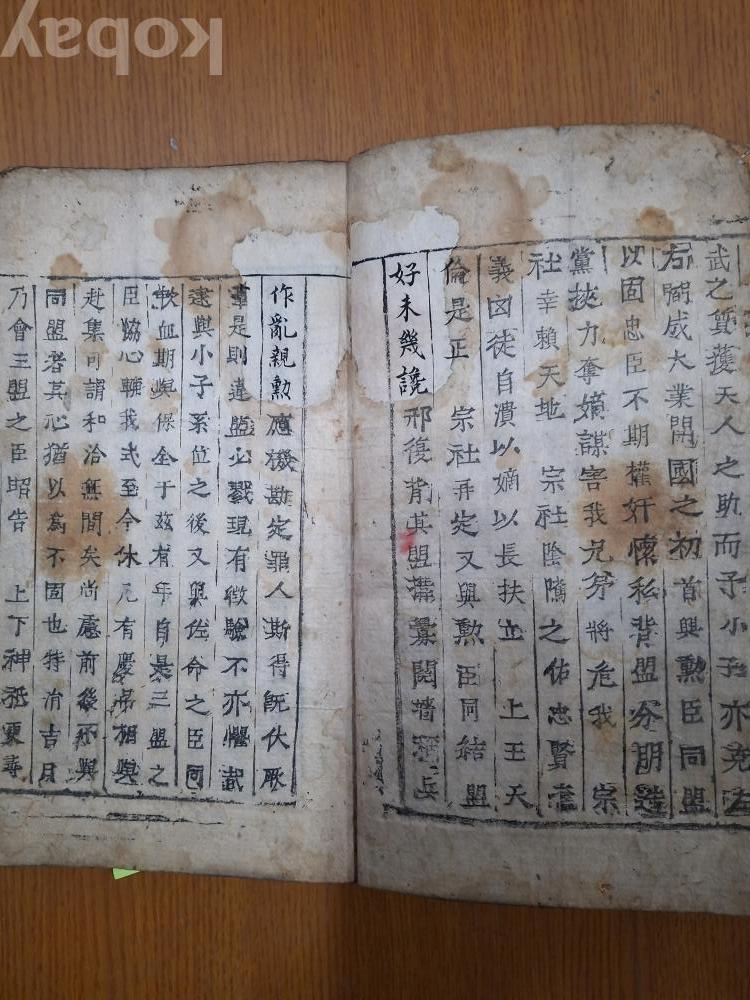 武之質獲天人之助而予小子亦克左
右成大業開國之初首與勲臣同盟
以固忠臣不期權奸懷私背盟分朋造
黨挾力奪嫡謀害我兄弟將危我 宗
社幸賴天地 宗社陰隲之佑忠賢奮
義凶徒自潰以嫡以長扶立 上王天
倫是正 宗社再定又與勲臣同結盟
好未幾讒邪復背其盟構釁鬩墻稱兵
作亂親勲應機勘定罪人斯得旣伏厥
辜是則違盟必戮現有徵驗不亦懼哉
逮與小子系位之後又與佐命之臣同
歃血期與保全于玆有年自是三盟之
臣協心輔我式至今休凡有慶吊相與
赴集可謂和洽無間矣尚慮前後不與
同盟者其心猶以為不固也特消吉日
乃會三盟之臣昭告 上下神祇更尋
kobay